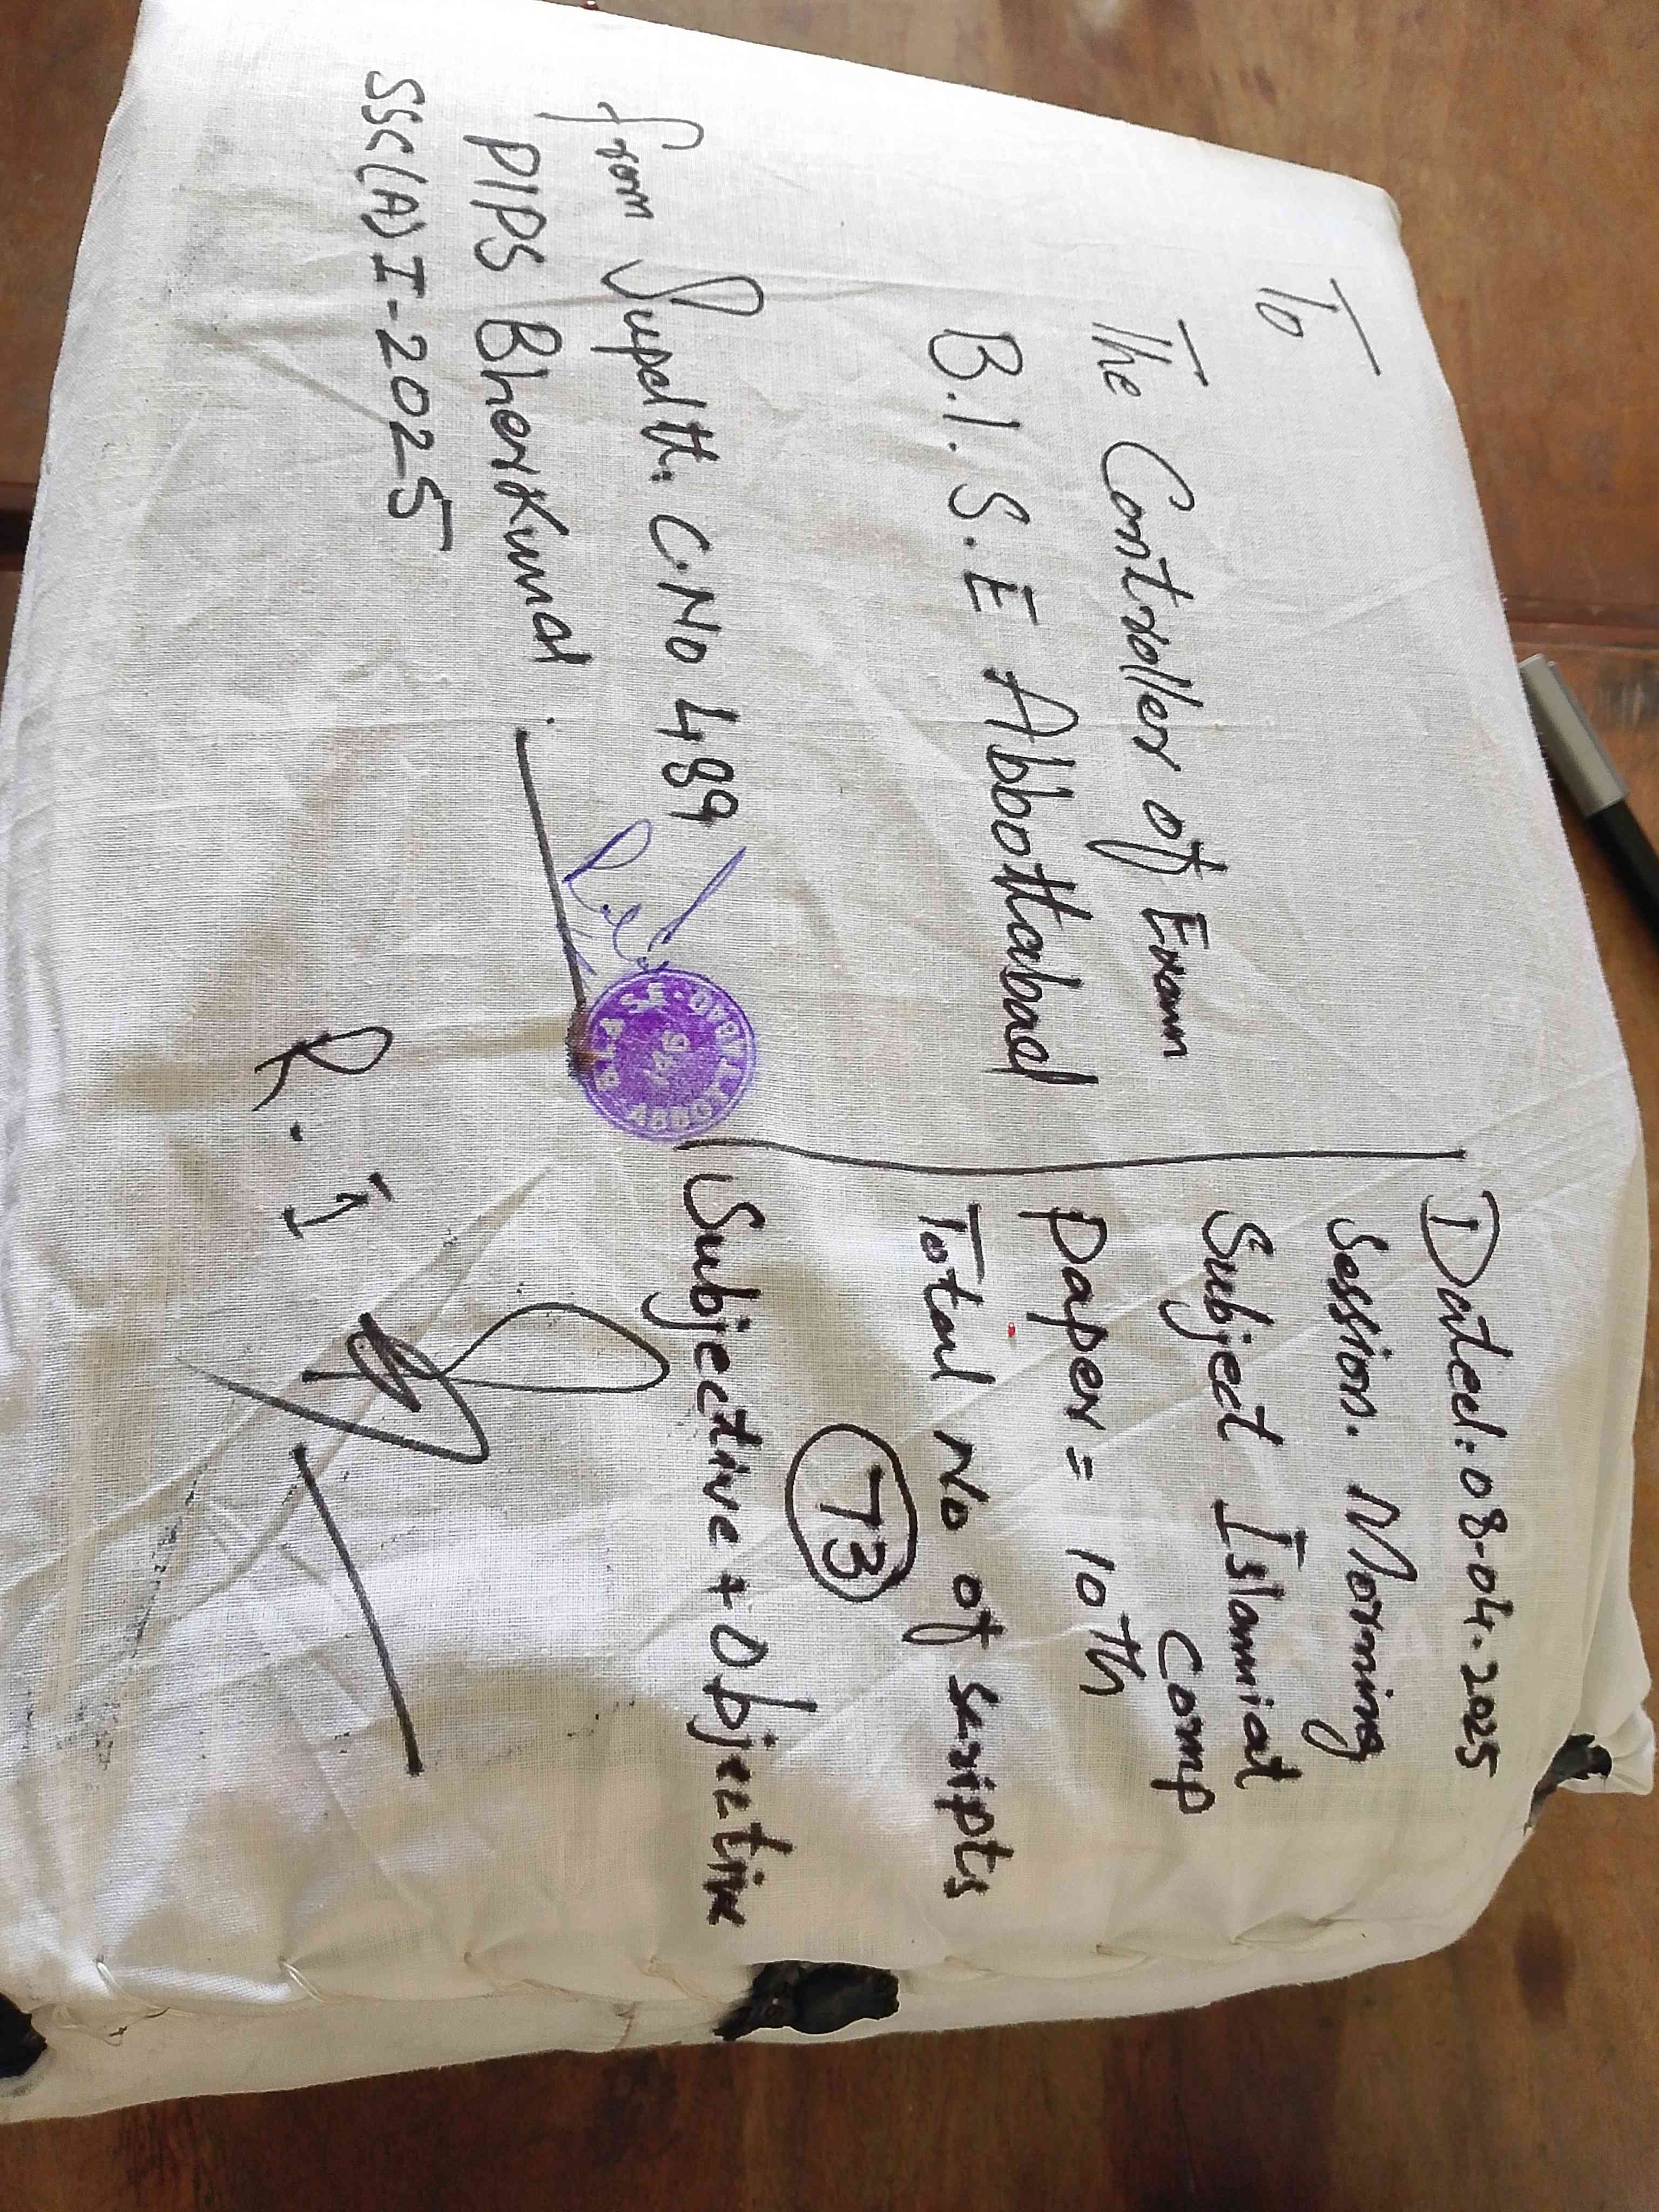 To
The Controller of Exam
B.I.S.E Abbottabad
from Supdtt. C.No 489
PIPS Bherkund.
SSC(A) I-2025
Dated: 08-04-2025
Session. Morning
Subject Islamiat
Comp
Paper = 10th
Total No of scripts
73
Subjective + Objective
R.I